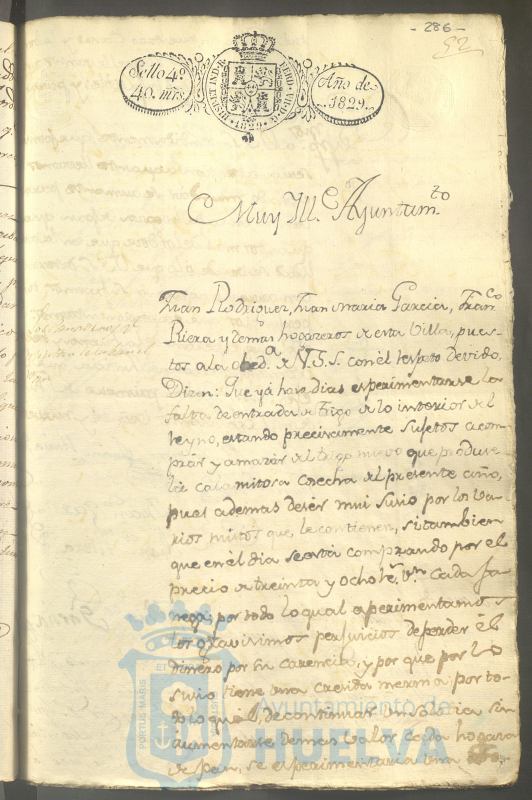 - 286 -
52
Sello 4º
40. mrs.
HISPET IND. R. FERD. VII. D. G.
1829
Año de
1829.
Muy Ill.e Ayuntam.to
Juan Rodriguez, Juan Maria Garcia, Fran.co
Riera y demas hogazeros de esta Villa, pues
tos ala obed.a de V.S.S. con el respeto devido,
Dizen: Que ya hace dias esperimentarse la
falta de entrada de trigo de lo interior del
reyno, estando precisamente sujetos a com
prar y amazar del trigo nuevo que produce
la calamitosa cosecha del presente año,
pues ademas de ser mui susio por los va
rios mistos que le contienen, si tambien
que en el dia se está comprando por el
precio de treinta y ocho r.s v.n cada fa
nega, por todo lo qual esperimentamos
los gravisimos perjuicios de perder el
dinero por su carencia, y por que por lo
susio tiene una crecida merma: por to
do lo qual, de continuar un solo dia sin
aumentarse demas valor cada hogaza
de pan, se esperimentaria una
PORTUS MARIS ET
Ayuntamiento de
HUELVA